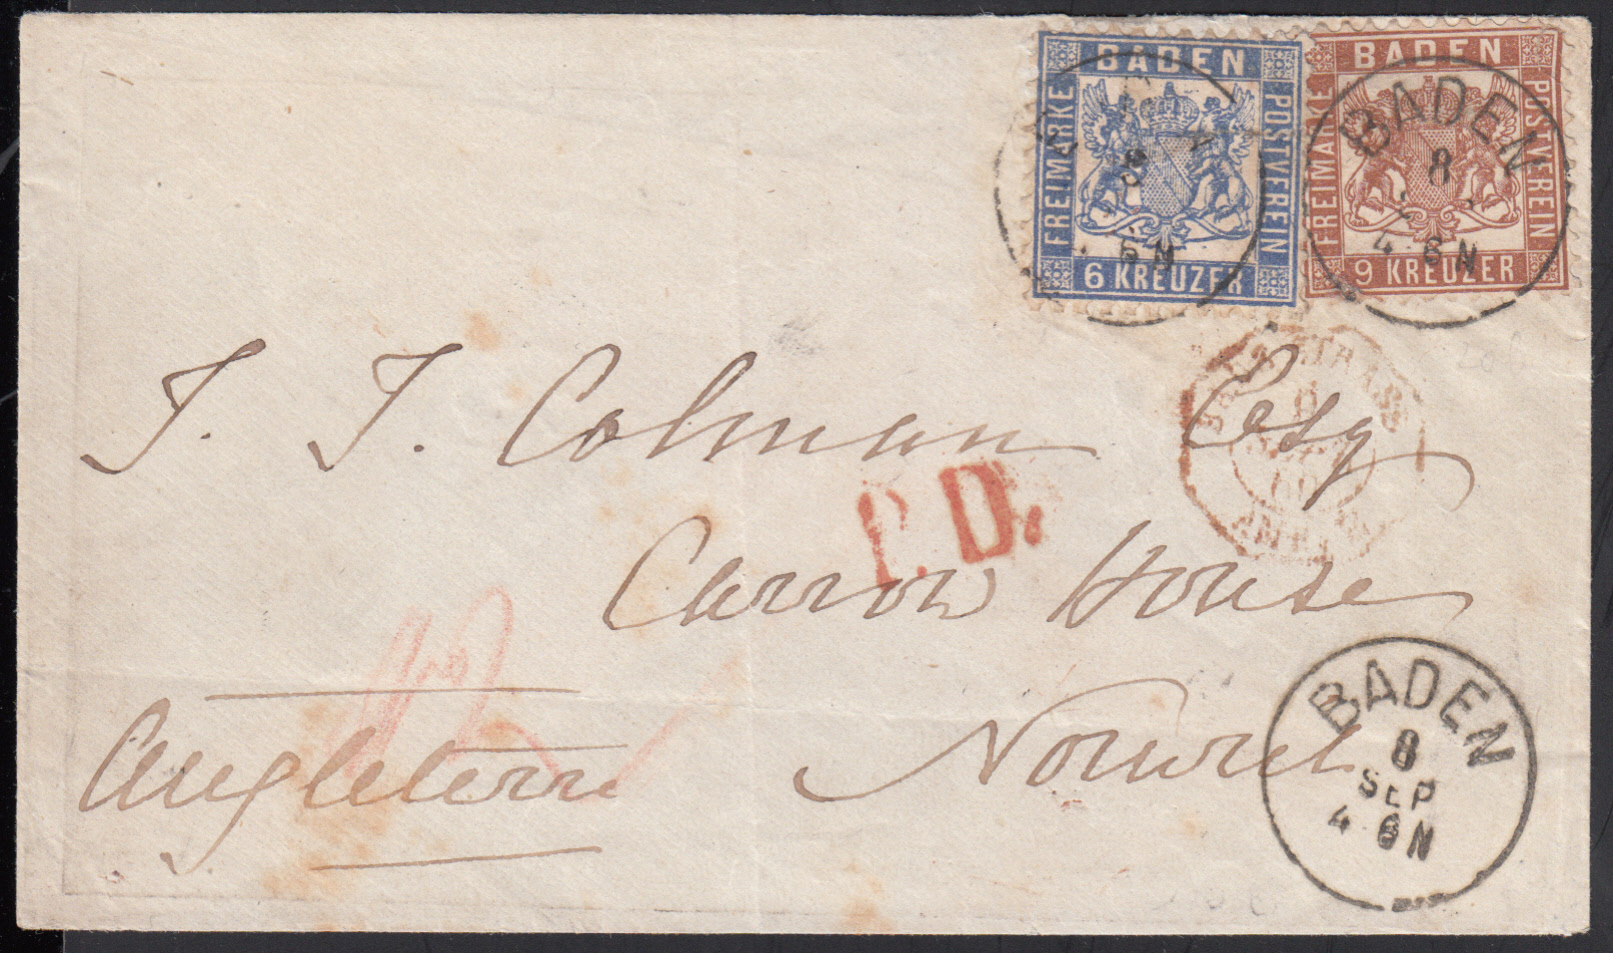 BADEN
FREIMARKE
POSTVEREIN
6 KREUZER
BADEN
FREIMARKE
POSTVEREIN
9 KREUZER
8
6 N
BADEN
8
4 6 N
STRASB
J. J. Colman Esq
P.D.
Carrow House
Norwich
Angleterre
BADEN
8
SEP
4 6 N